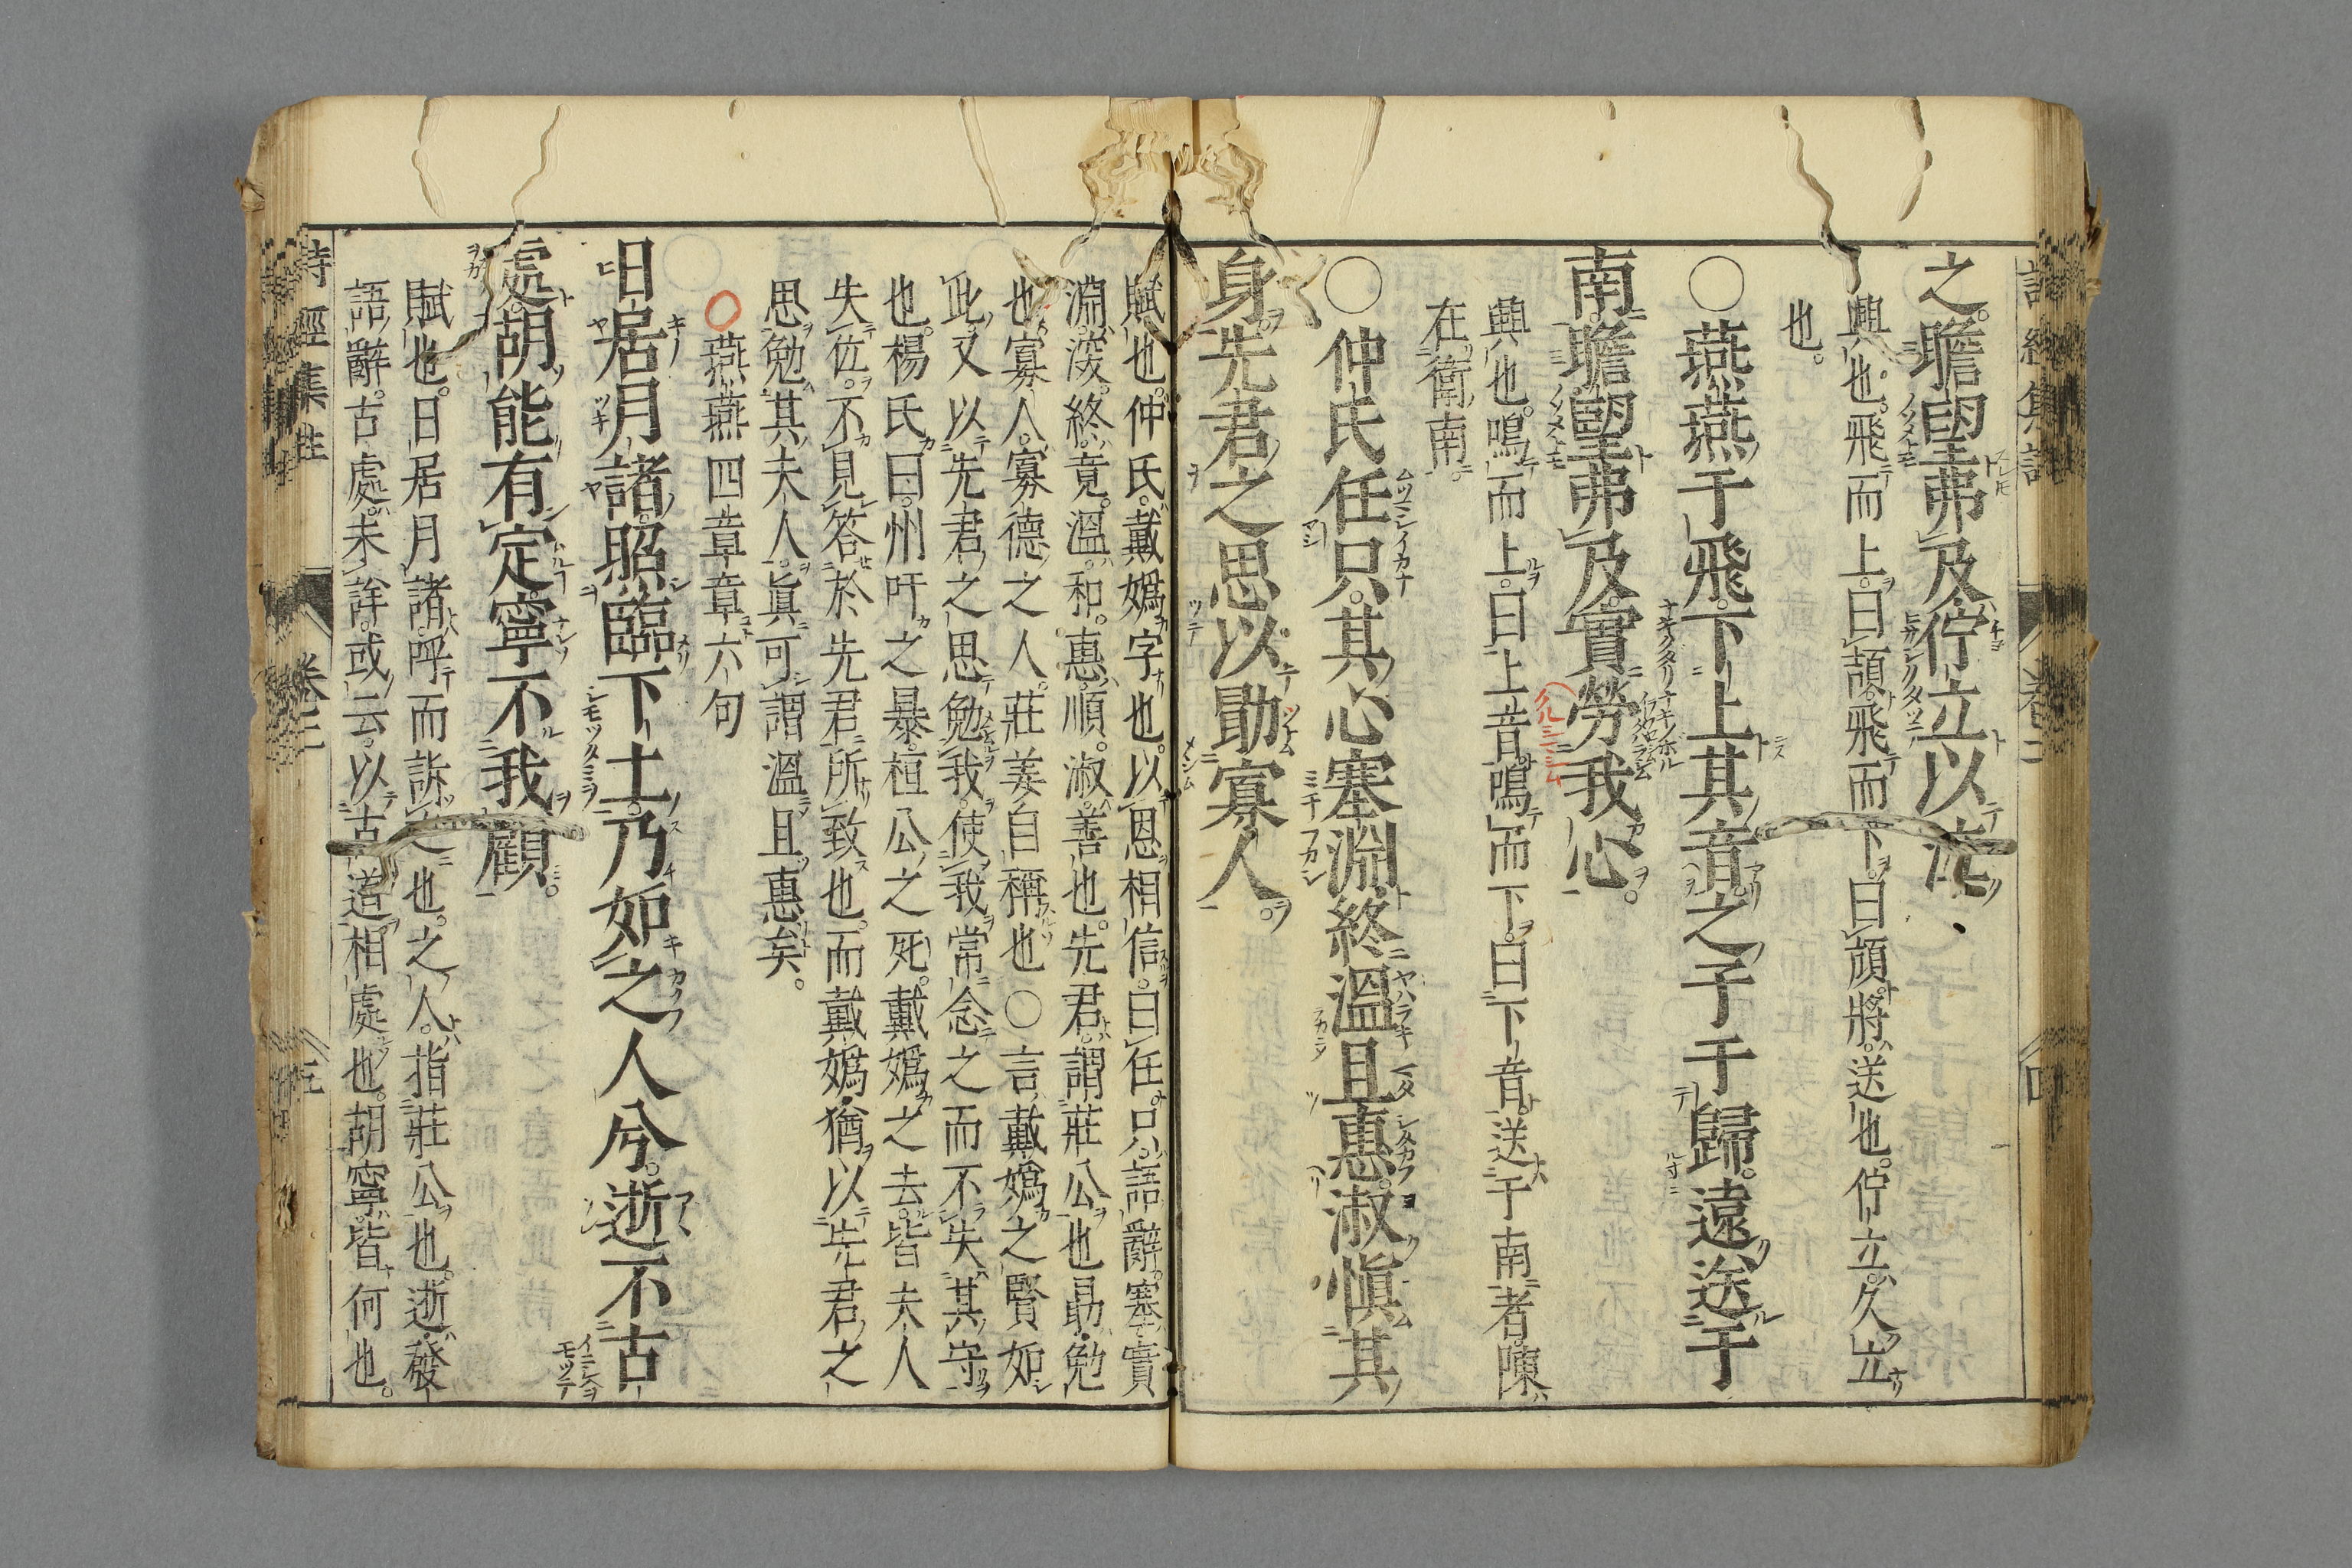 之。瞻望弗及。佇立以泣。
興也。飛而上。曰頡。飛而下。曰頏。將。送也。佇立。久立
也。
○燕燕于飛。下上其音。之子于歸。遠送于
南。瞻望弗及。實勞我心。
興也。鳴而上。曰上音。鳴而下。曰下音。送于南者。陳
在衛南。
○仲氏任只。其心塞淵。終溫且惠。淑愼其
身。先君之思。以勖寡人。
賦也。仲氏。戴嬀字也。以恩相信。曰任。只。語辭。塞。實
淵。深。終。竟。溫。和。惠。順。淑。善也。先君。謂莊公也。勗。勉
也。寡人。寡德之人。莊姜自稱也○言戴嬀之賢如
此。又以先君之思勉我。使我常念之而不失其守
也。楊氏曰。州吁之暴。桓公之死。戴嬀之去。皆夫人
失位。不見答於先君所致也。而戴嬀猶以先君之
思勉其夫人。眞可謂溫且惠矣。
燕燕四章章六句
日居月諸。照臨下土。乃如之人兮。逝不古
處。胡能有定。寧不我顧。
賦也。日居月諸。呼而訴之也。之人。指莊公也。逝。發
語辭。古處。未詳。或云。以古道相處也。胡寧。皆何也。
詩經集註 卷二 五